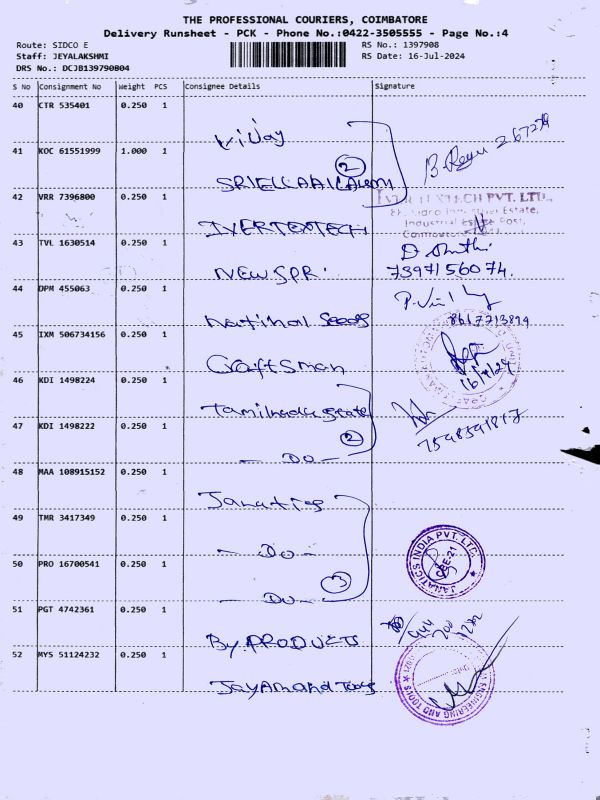 THE PROFESSIONAL COURIERS, COIMBATORE
Delivery Runsheet - PCK - Phone No.:0422-3505555 - Page No.:4
Route: SIDCO E
RS No.: 1397908
Staff: JEYALAKSHMI
RS Date: 16-Jul-2024
DRS No.: DCJB139790804
S No Consignment No Weight PCS Consignee Details Signature
40 CTR 535401 0.250 1
Vijay
41 KOC 61551999 1.000 1
2
42 VRR 7396800 0.250 1
PVT. LTD.,
Estate,
Industrial Post,
INERTEXTECH
43 TVL 1630514 0.250 1
NEW SPR
7397156074.
44 DPM 455063 0.250 1
National Seeds
8617713899
45 IXM 506734156 0.250 1
Craftsman
46 KDI 1498224 0.250 1
Tamilnadu State
47 KDI 1498222 0.250 1
2
- DO -
48 MAA 108915152 0.250 1
Janatics
49 TMR 3417349 0.250 1
- DO -
JANATICS INDIA PVT. LTD.
CBE-21
50 PRO 16700541 0.250 1
3
- DO -
51 PGT 4742361 0.250 1
By PRODUCTS
52 MYS 51124232 0.250 1
Jay Anand Tools
ENGINEERING AND TOOLS